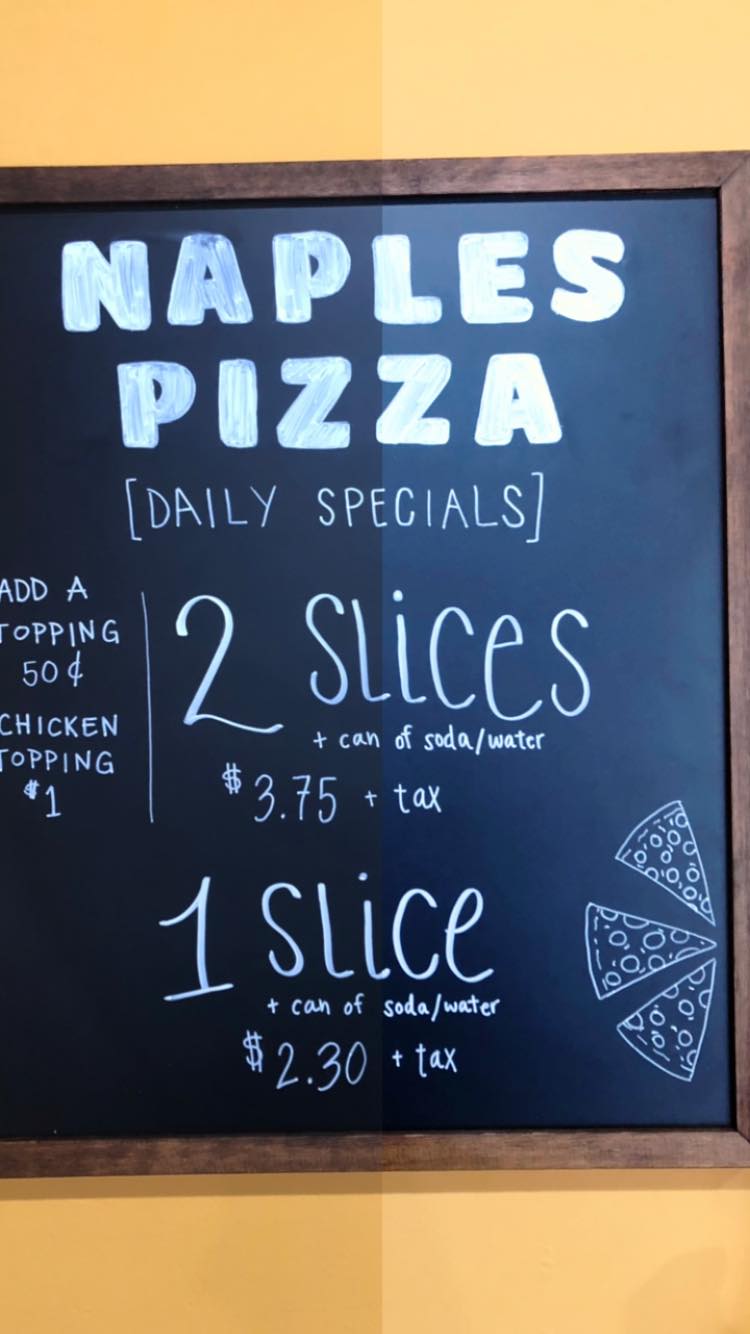 NAPLES
PIZZA
[DAILY SPECIALS]
ADD A
TOPPING
50¢
CHICKEN
TOPPING
$1
2 SLiCES
+ can of soda/water
$3.75 + tax
1 SLiCE
+ can of soda/water
$2.30 + tax